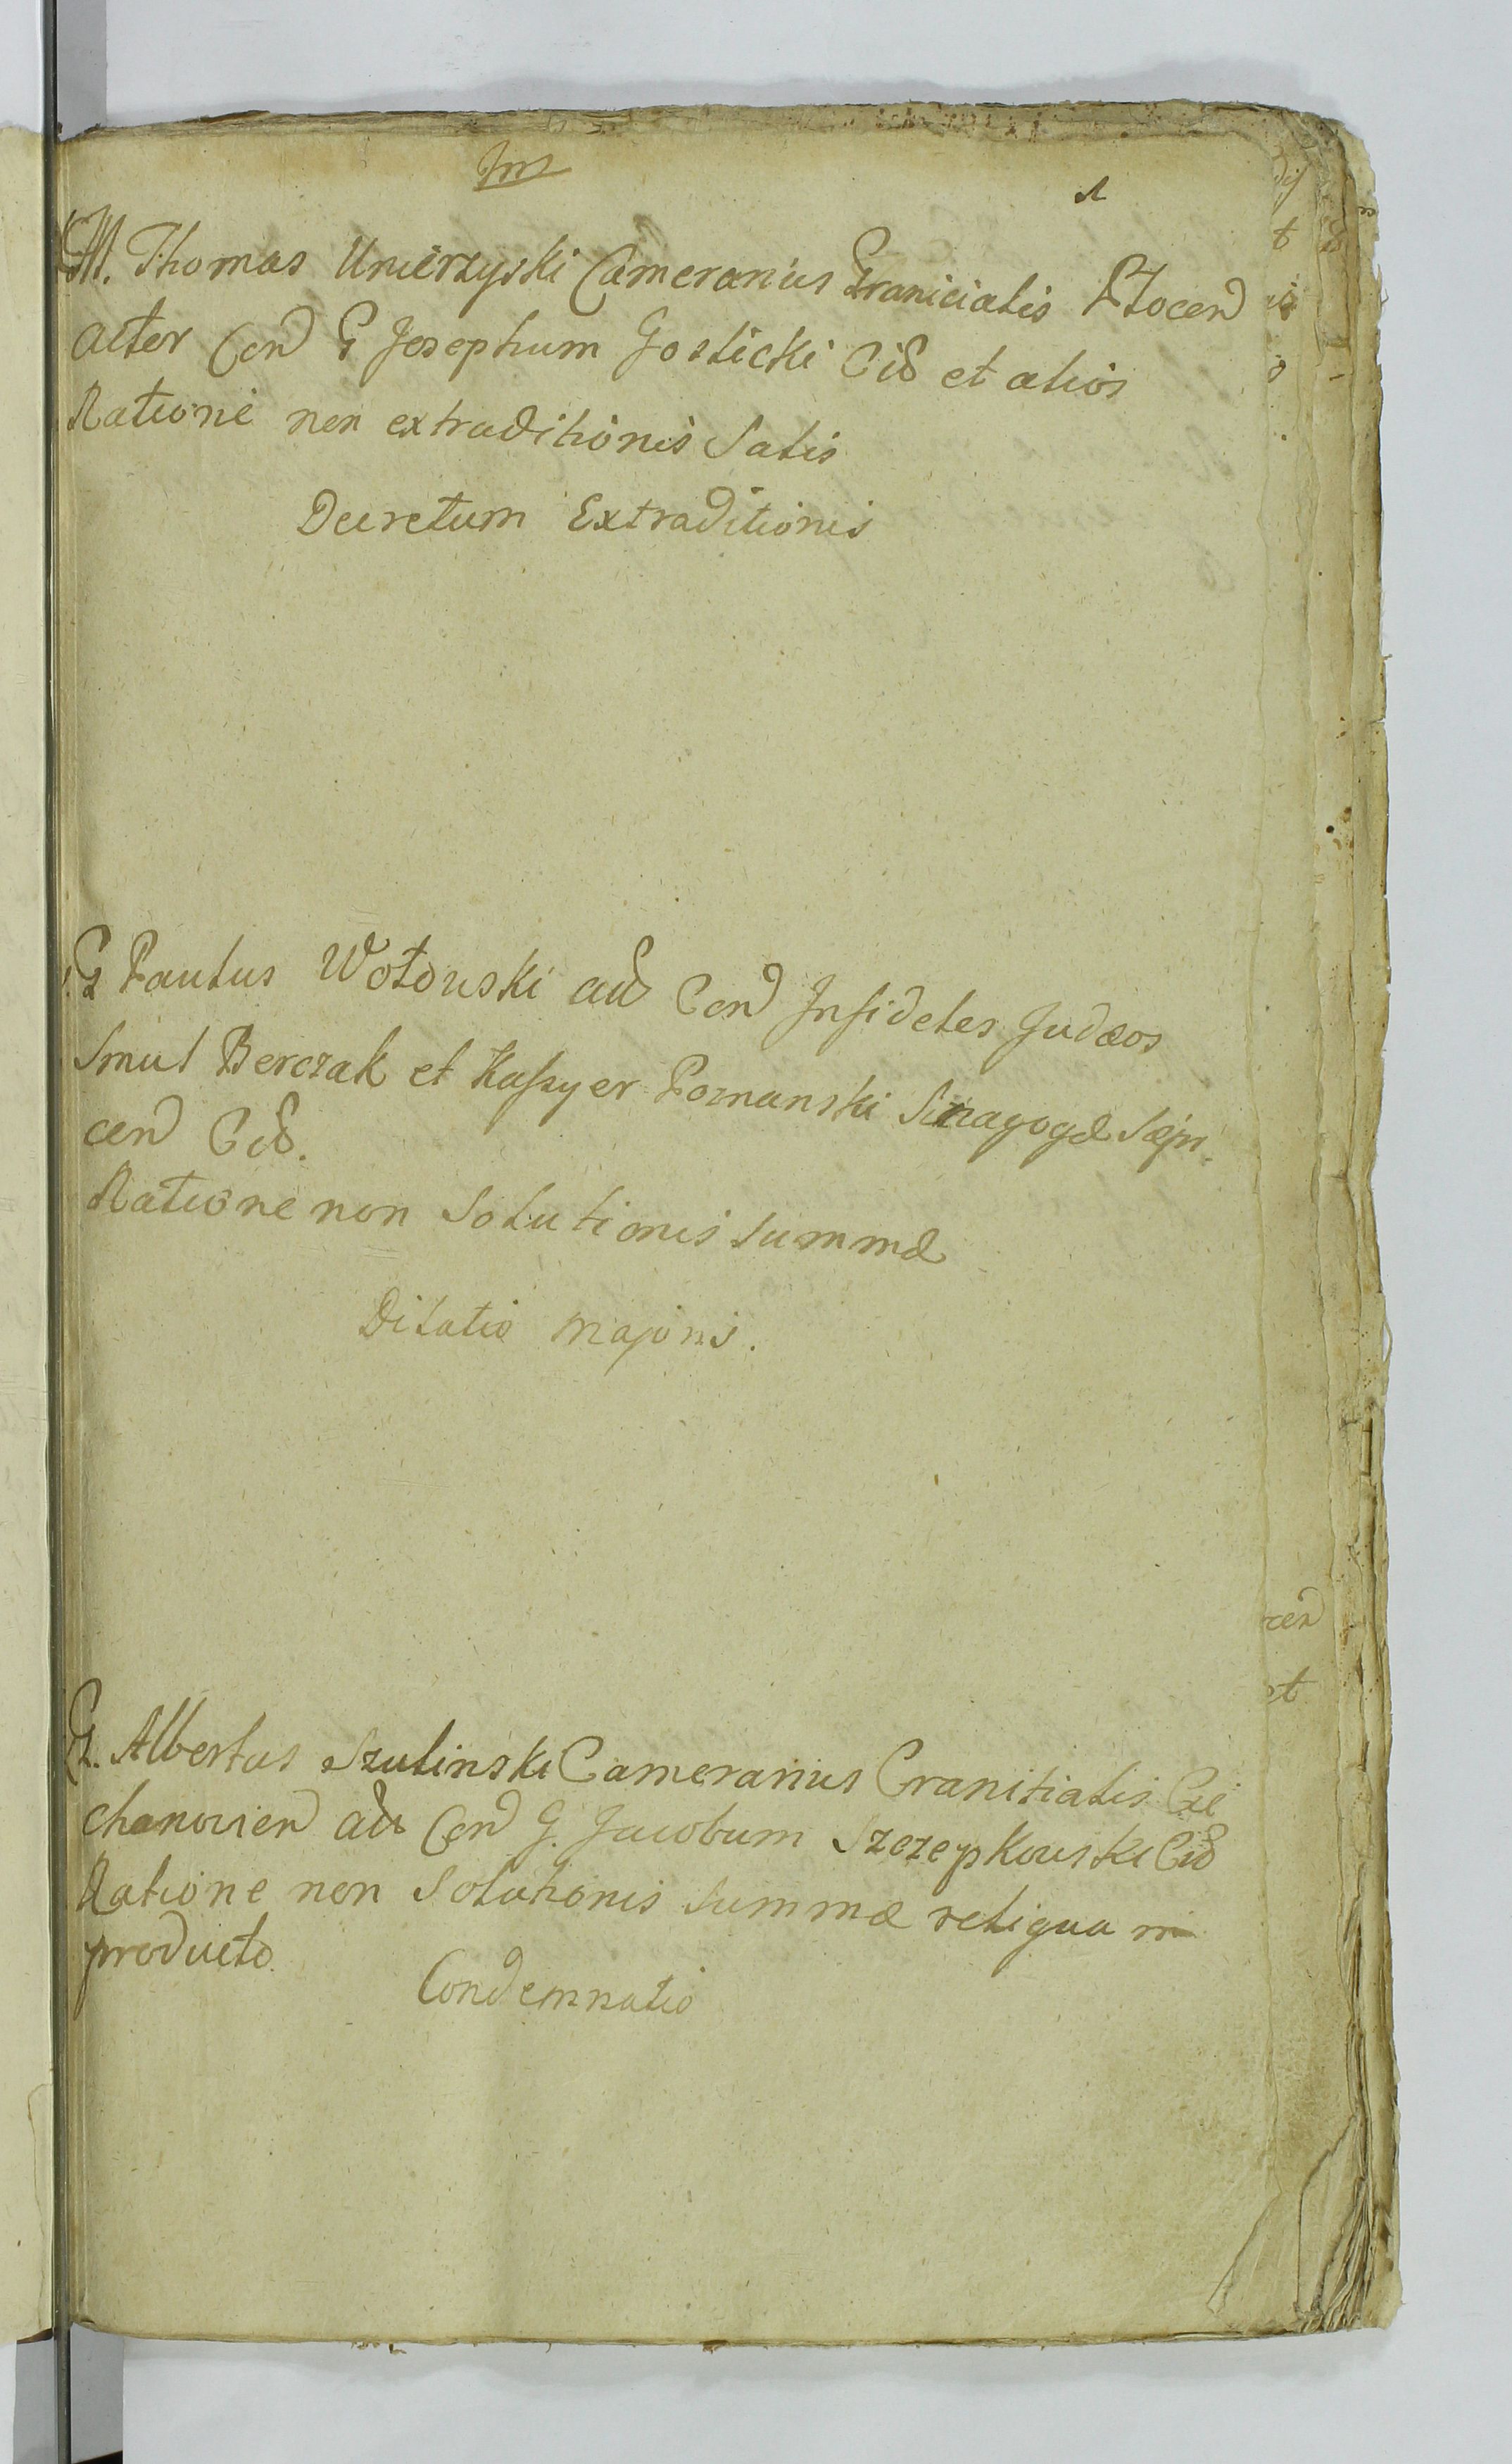 M. Thomas Umierzyski Camerarius Graniciatis Płocen
Actor Con G Josephum Gosticki Cit et alios
Ratione non extraditionis Satis
Decretum Extraditionis
G Paulus Wołowski act Con Infideles Judæos
Smul Berczak et Kaszyer Poznanski Sinagogæ Sæpn
cen Cit.
Ratione non Solutionis Summæ
Dilatio Majoris.
G. Albertus Szulinski Camerarius Granitialis Cie
chanovien act Con G. Jacobum Szczepkowski Cit
Ratione non Solutionis Summæ reliqua in
producto
Condemnatio